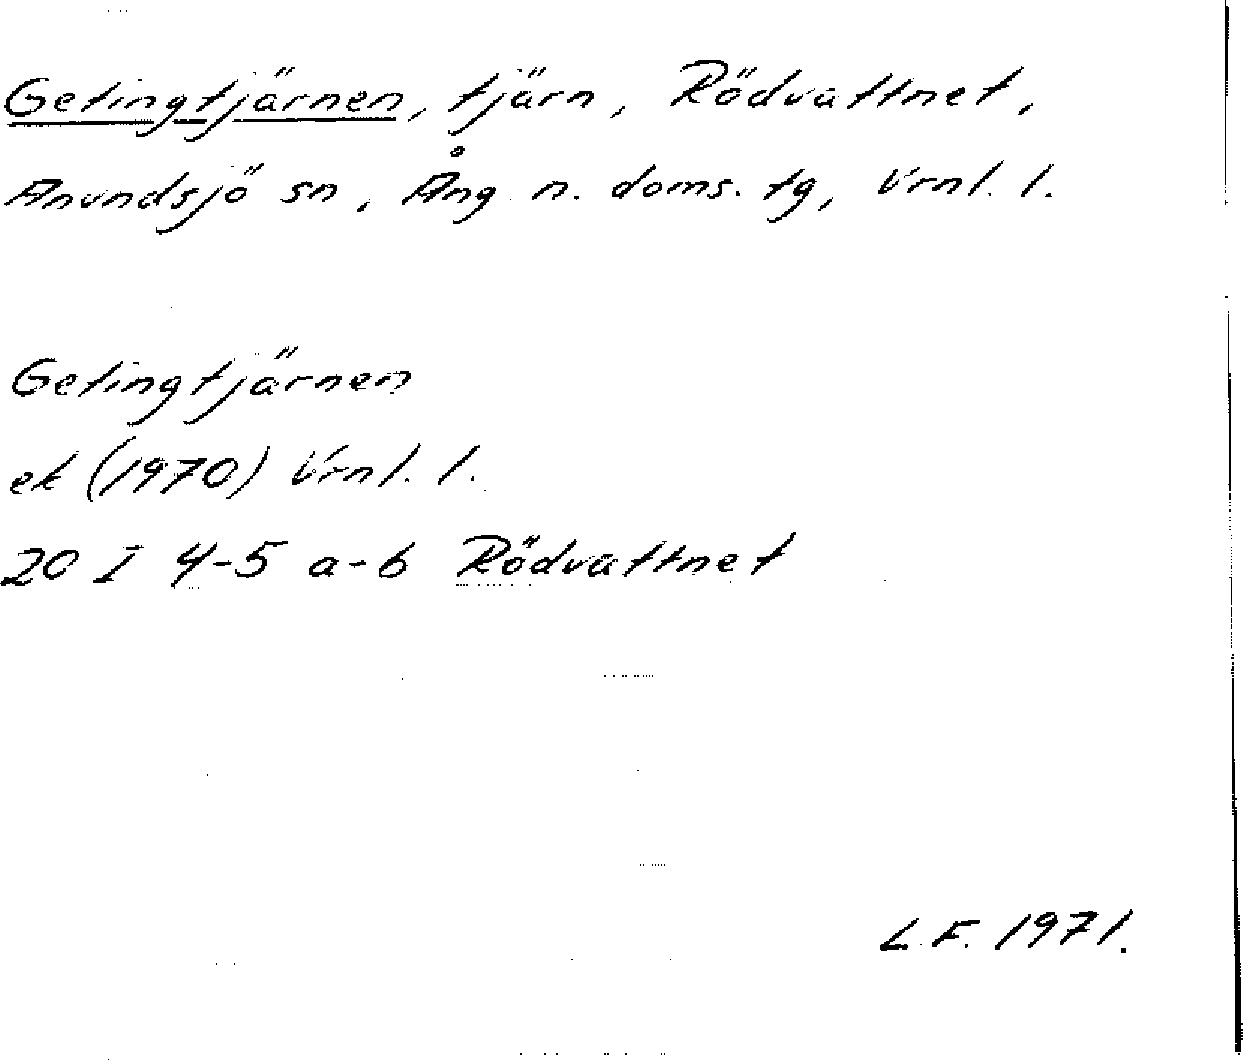 Getingtjärnen, tjärn, Rödvattnet,
Anundsjö sn, Ång n. doms. tg, Vrnl. l.
Getingtjärnen
ek (1970) Vrnl. l.
20 I 4-5 a-b Rödvattnet
L.F. 1971.